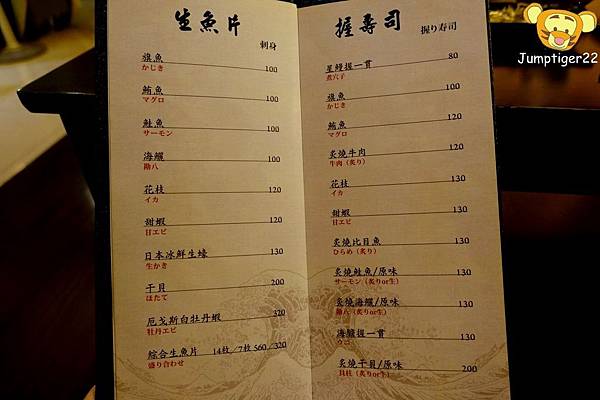 Jumptiger22
生魚片 刺身
旗魚 100
かじき
鮪魚 100
マグロ
鮭魚 100
サーモン
海鱺 100
花枝 120
イカ
甜蝦 120
甘エビ
日本冰鮮生蠔 130
生かき
干貝 200
ほたて
厄戈斯白牡丹蝦 320
牡丹エビ
綜合生魚片 14枚/7枚 560/320
盛り合わせ
握壽司 握り寿司
星鰻握一貫 80
煮穴子
旗魚 100
かじき
鮪魚 120
マグロ
炙燒牛肉 120
牛肉(炙り)
花枝 130
イカ
甜蝦 130
甘エビ
炙燒比目魚 130
ひらめ(炙り)
炙燒鮭魚/原味 130
サーモン(炙りor生)
炙燒海鱺/原味 130
海膽握一貫 130
ウニ
炙燒干貝/原味 200
貝柱(炙りor生)